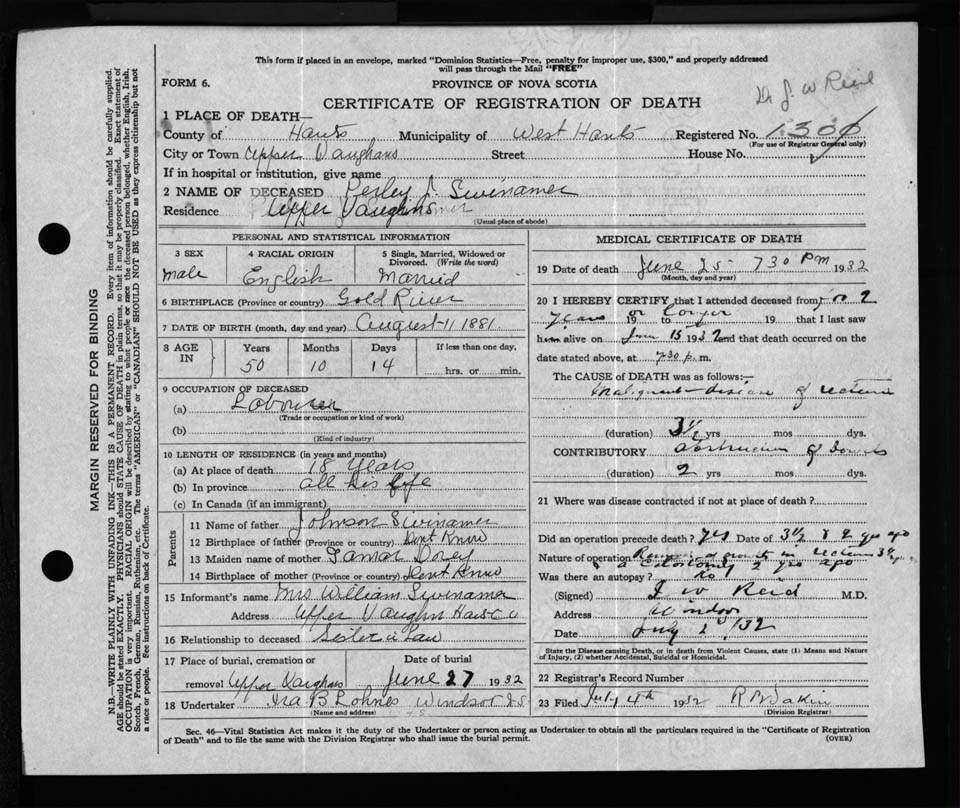 This form if placed in an envelope, marked "Dominion Statistics—Free, penalty for improper use, $300," and properly addressed
will pass through the Mail "FREE"
FORM 6.
PROVINCE OF NOVA SCOTIA
Dr J. W Reid
CERTIFICATE OF REGISTRATION OF DEATH
1 PLACE OF DEATH—
County of Hants Municipality of West Hants Registered No. 1300
(For use of Registrar General only)
City or Town Upper Vaughans Street House No.
If in hospital or institution, give name
2 NAME OF DECEASED Perley Swinamer
Residence Upper Vaughns
(Usual place of abode)
PERSONAL AND STATISTICAL INFORMATION
3 SEX
Male
4 RACIAL ORIGIN
English
5 Single, Married, Widowed or
Divorced. (Write the word)
Married
6 BIRTHPLACE (Province or country) Gold River
7 DATE OF BIRTH (month, day and year) August 11 1881
8 AGE
IN
Years Months Days If less than one day,
50 10 14 hrs. or min.
9 OCCUPATION OF DECEASED
(a) Labourer
(Trade or occupation or kind of work)
(b)
(Kind of industry)
10 LENGTH OF RESIDENCE (in years and months)
(a) At place of death 18 Years
(b) In province all his life
(c) In Canada (if an immigrant)
Parents
11 Name of father Johnson Swinamer
12 Birthplace of father (Province or country) Dont Know
13 Maiden name of mother Tamar
14 Birthplace of mother (Province or country) Dont Know
15 Informant's name Mrs William Swinamer
Address Upper Vaughn Hants Co
16 Relationship to deceased Sister in Law
17 Place of burial, cremation or Date of burial
removal Upper Vaughans June 27 1932
18 Undertaker Ira B Lohnes Windsor N.S
(Name and address)
MEDICAL CERTIFICATE OF DEATH
19 Date of death June 25 7 30 PM 1932
(Month, day and year)
20 I HEREBY CERTIFY that I attended deceased from for 2
years 19 or to longer 19 that I last saw
him alive on June 15 1932 and that death occurred on the
date stated above, at 7 30 p. m.
The CAUSE of DEATH was as follows:—
Malignant disease of rectum
(duration) 3½ yrs mos dys.
CONTRIBUTORY obstruction of bowels
(duration) 2 yrs mos dys.
21 Where was disease contracted if not at place of death?
Did an operation precede death? yes Date of 3½ & 2 yrs ago
Nature of operation Removed growth in rectum 3½ yrs
& a colostomy 2 yrs ago
Was there an autopsy? No
(Signed) J W Reid M.D.
Address Windsor
Date July 2 /32
State the Disease causing Death, or in death from Violent Causes, state (1) Means and Nature
of Injury, (2) whether Accidental, Suicidal or Homicidal.
22 Registrars's Record Number
23 Filed July 4th 1932
(Division Registrar)
Sec. 46—Vital Statistics Act makes it the duty of the Undertaker or person acting as Undertaker to obtain all the particulars required in the "Certificate of Registration
of Death" and to file the same with the Division Registrar who shall issue the burial permit. (OVER)
MARGIN RESERVED FOR BINDING
N.B.—WRITE PLAINLY WITH UNFADING INK—THIS IS A PERMANENT RECORD. Every item of information should be carefully supplied.
AGE should be stated EXACTLY. PHYSICIANS should STATE CAUSE OF DEATH in plain terms, so that it may be properly classified. Exact statement of
OCCUPATION is very important. RACIAL ORIGIN will be described by stating to what people or race the deceased person belonged, whether English, Irish,
Scotch, French, German, Russian, Ruthenian, etc. The terms "AMERICAN" or "CANADIAN" SHOULD NOT BE USED as they express citizenship but not
a race or people. See instructions on back of Certificate.